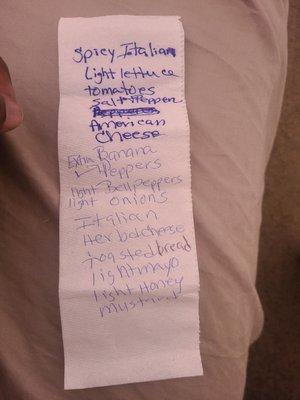 Spicy Italian
Light lettuce
tomatoes
Salt Pepper
American
Cheese
Extra Banana
Peppers
light Bell Peppers
light onions
Italian
Herb&cheese
toasted bread
light mayo
light Honey
mustard